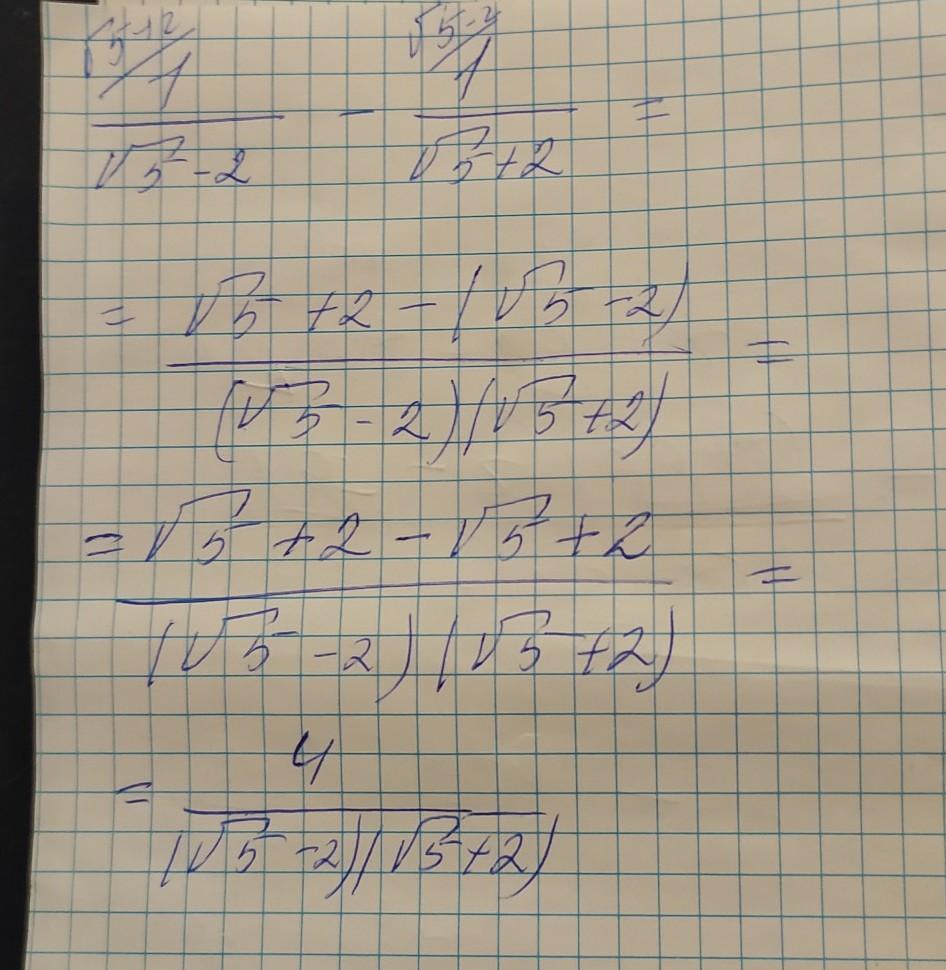 √5+2/ √5-2/
1/(√5-2) - 1/(√5+2) =
= (√5+2-(√5-2))/((√5-2)(√5+2)) =
= (√5+2-√5+2)/((√5-2)(√5+2)) =
= 4/((√5-2)(√5+2))